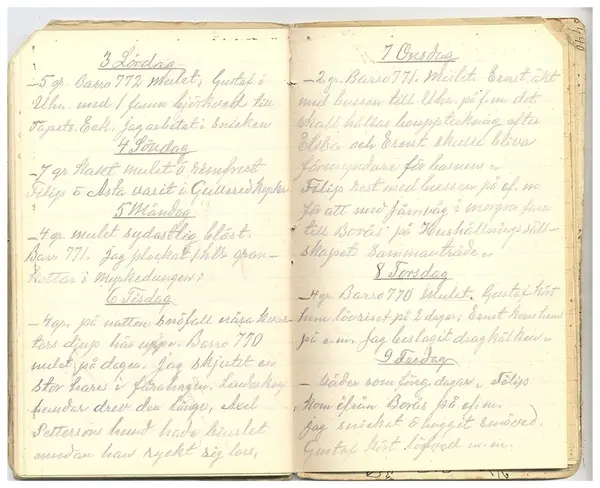 3 Lördag
-5 gr. Barro 772 Mulet, Gustaf i
Uhn. med 1 famn björkved till
Tapets. Eck, Jag arbetat i snicken
4 Söndag
-7 gr. mulet o
Filips o Asta varit i Gullered kyrka
5 Måndag
-4 gr. mulet sydostlig blåst.
Barr 771. jag plockat 1 hl. gran-
kottar i Myrkedungen;
6 Tisdag
-4 gr. på natten snöfall
ters djup har Barro 770
mulet på dagen, jag skjutit en
stor hare i fårahagen,
hundar drev den länge, Axel
Pettersons hund hade
medan han ryckt sig lös,
7 Onsdag
-2 gr. Barro 771. Mulet. Ernst åkt
med bussen till Uhn. på f.m. det
skall hållas bouppteckning efter
Elsba och Ernst skulle bliva
förmyndare för barnen
Filips rest med bussen på ef. m.
för att med järnväg i morgon fara
till Borås på Hushållningssäll-
skapets Sammanträde
8 Torsdag
-4 gr. Barro 770 Mulet. Gustaf kört
hem lövriset på 2 dagar, Ernst kom hem
på e.m. Jag beslagit dragkälken
9 Fredag
- Filips
kom ifrån Borås på ef. m.
jag snickat o huggit småved.
Gustaf kört lövved m.m.
440